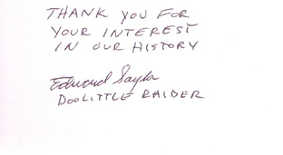 THANK YOU FOR
YOUR INTEREST
IN OUR HISTORY
Edward Saylor
DOOLITTLE RAIDER